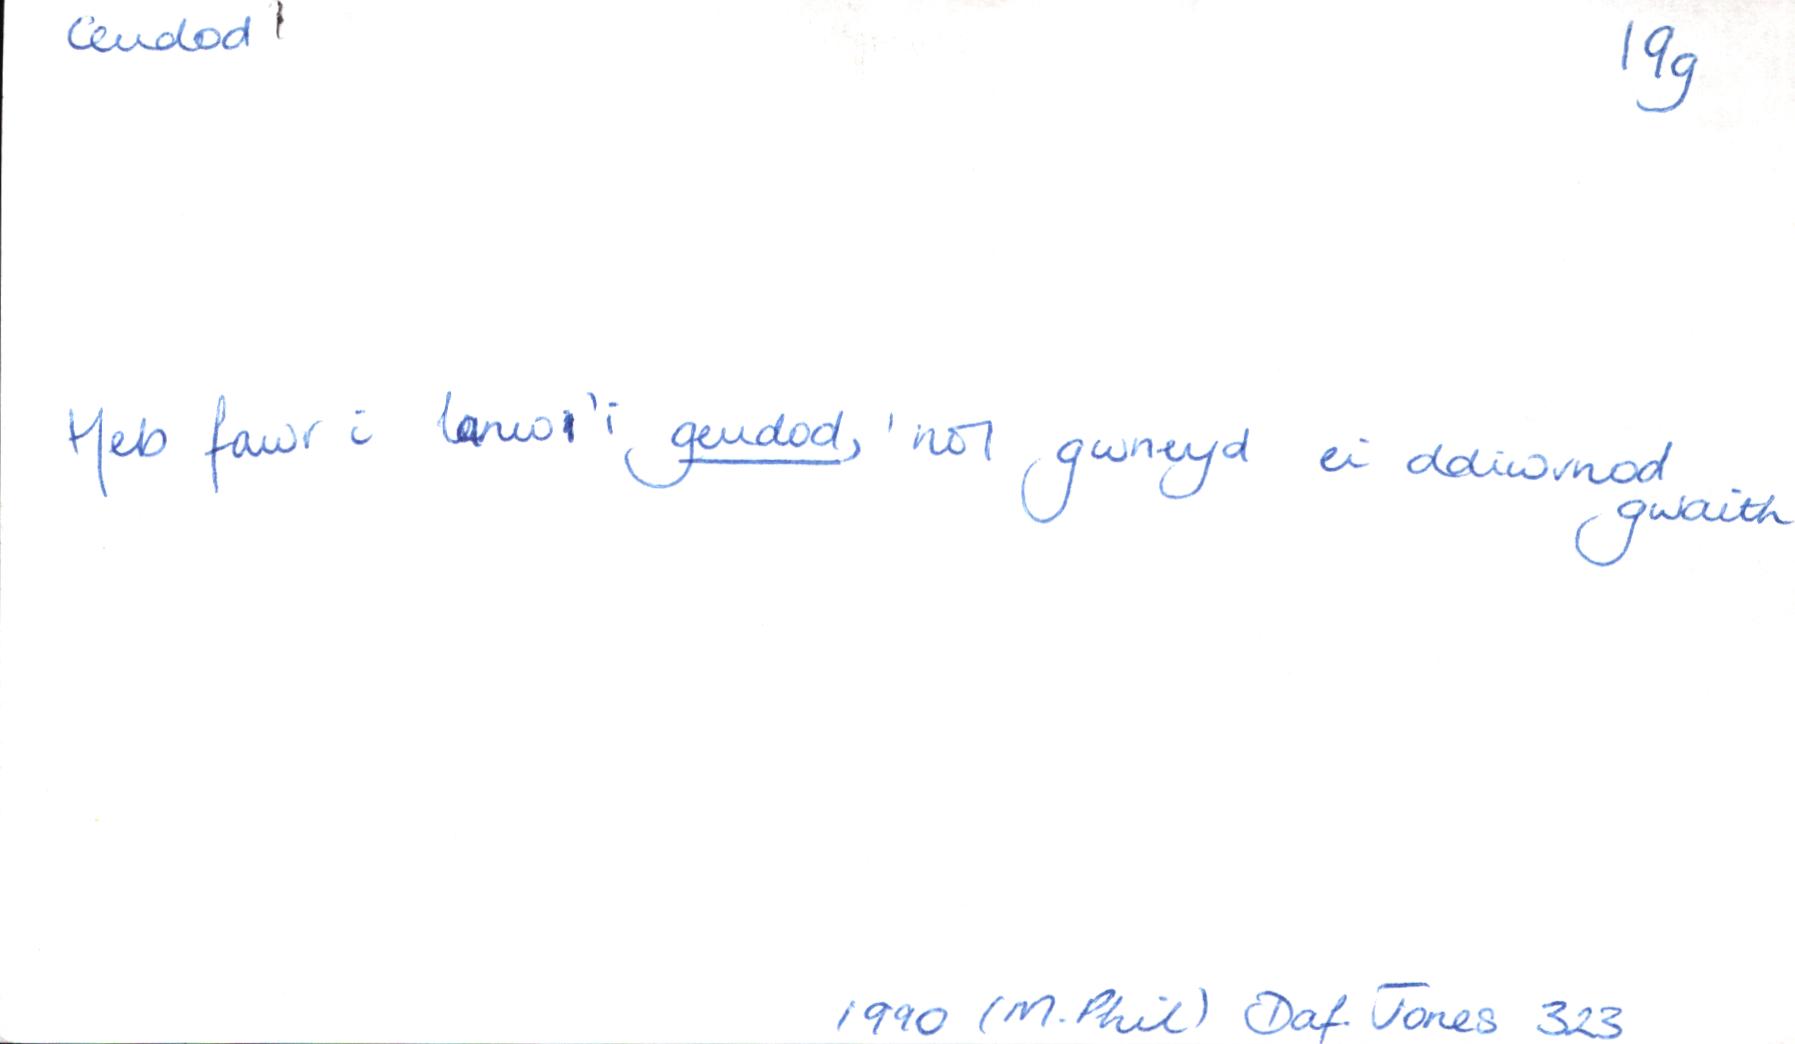 Ceudod¹
19g
Heb fawr i lanw'i geudod, 'nôl gwneyd ei ddiwrnod
gwaith
1990 (M. Phil) Daf. Jones 323